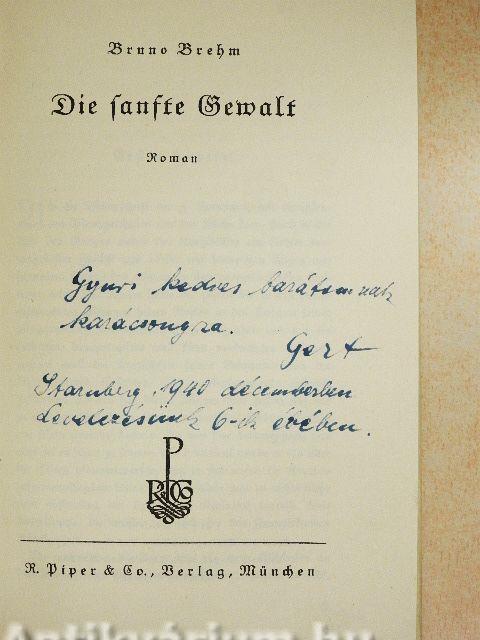 Bruno Brehm
Die sanfte Gewalt
Roman
Gyuri kedves barátomnak
karácsonyra.
Gert
Starnberg, 1940 décemberben
Levelezésünk 6-ik évében.
P
R & CO
R. Piper & Co., Verlag, München
Antikvárium.hu